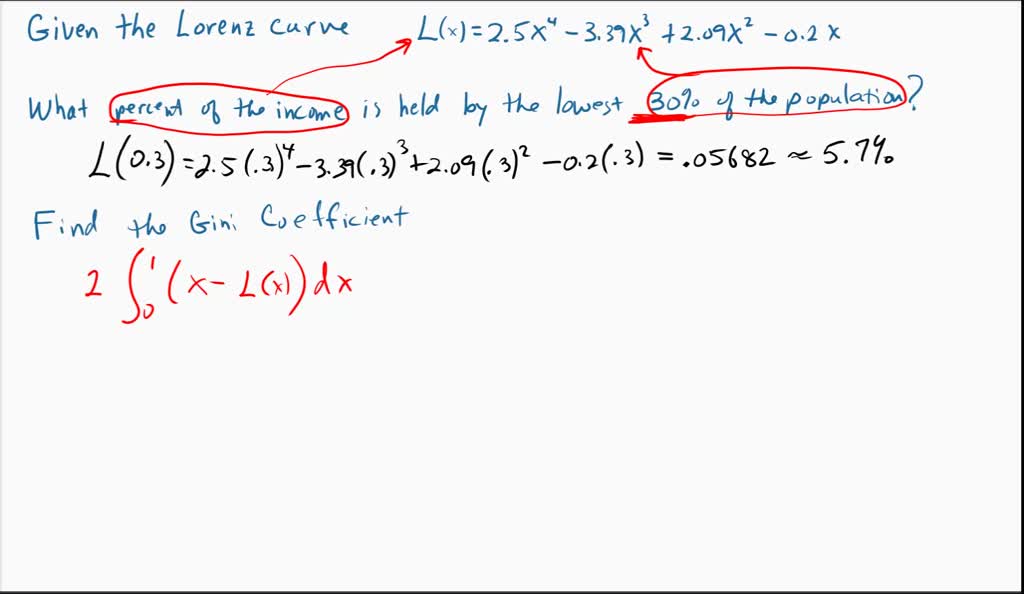 Given the Lorenz curve L(x)=2.5x⁴-3.39x³+2.09x²-0.2x
What percent of the income is held by the lowest 30% of the population?
L(0.3)=2.5(.3)⁴-3.39(.3)³+2.09(.3)²-0.2(.3)=.05682≈5.7%
Find the Gini Coefficient
2∫₀¹(x-L(x))dx